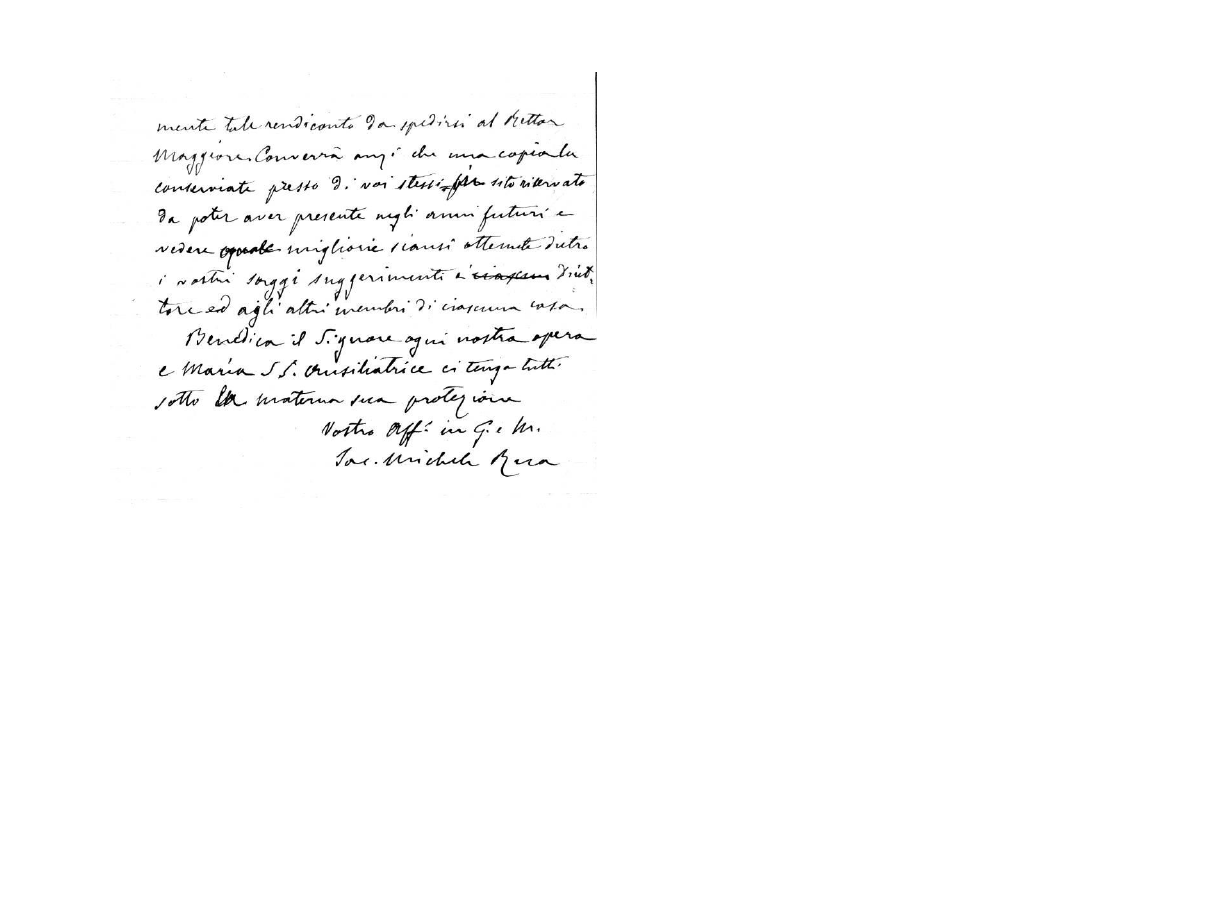 mente tale rendiconto da spedirsi al Rettor
Maggiore. Converrà anzi che una copia la
conserviate presso di voi stessi in sito riservato
da poter aver presente negli anni futuri e
vedere quale migliorie siansi ottenute dietro
i vostri saggi suggerimenti a ciascun diret-
tore ed agli altri membri di ciascuna casa.
Benedica il Signore ogni nostra opera
e Maria SS. Ausiliatrice ci tenga tutti
sotto la materna sua protezione
Vostro Aff. in G. e M.
Sac. Michele Rua